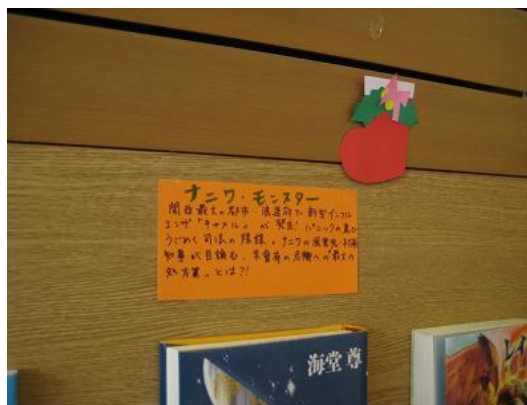 ナニワ・モンスター
関西最大の都市・浪速府で新型インフル
エンザ「キャメル」が発生！パニックの裏で
うごめく司法の陰謀。ナニワの風雲児・村雨
知事が目論む、未曾有の危機への"最大の
処方箋"とは?!
海堂 尊
レイ